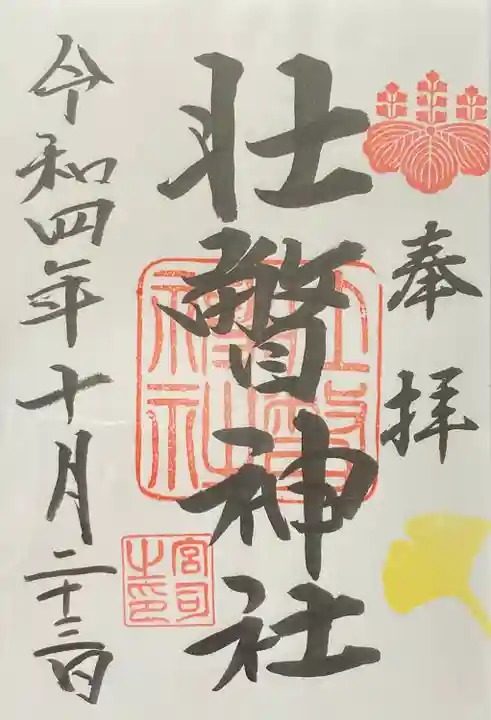 奉拝
壮瞥神社
宮司之印
令和四年十月二十三日